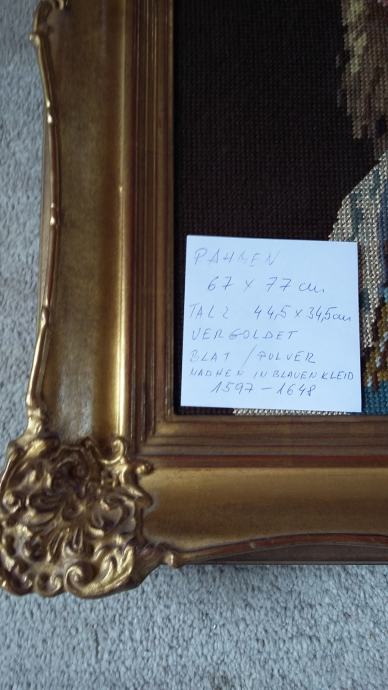 RAHMEN
67 x 77 cm
FALZ 44,5 x 34,5 cm
VERGOLDET
BLAT / PULVER
MADHEN IN BLAUEN KLEID
1597 - 1648